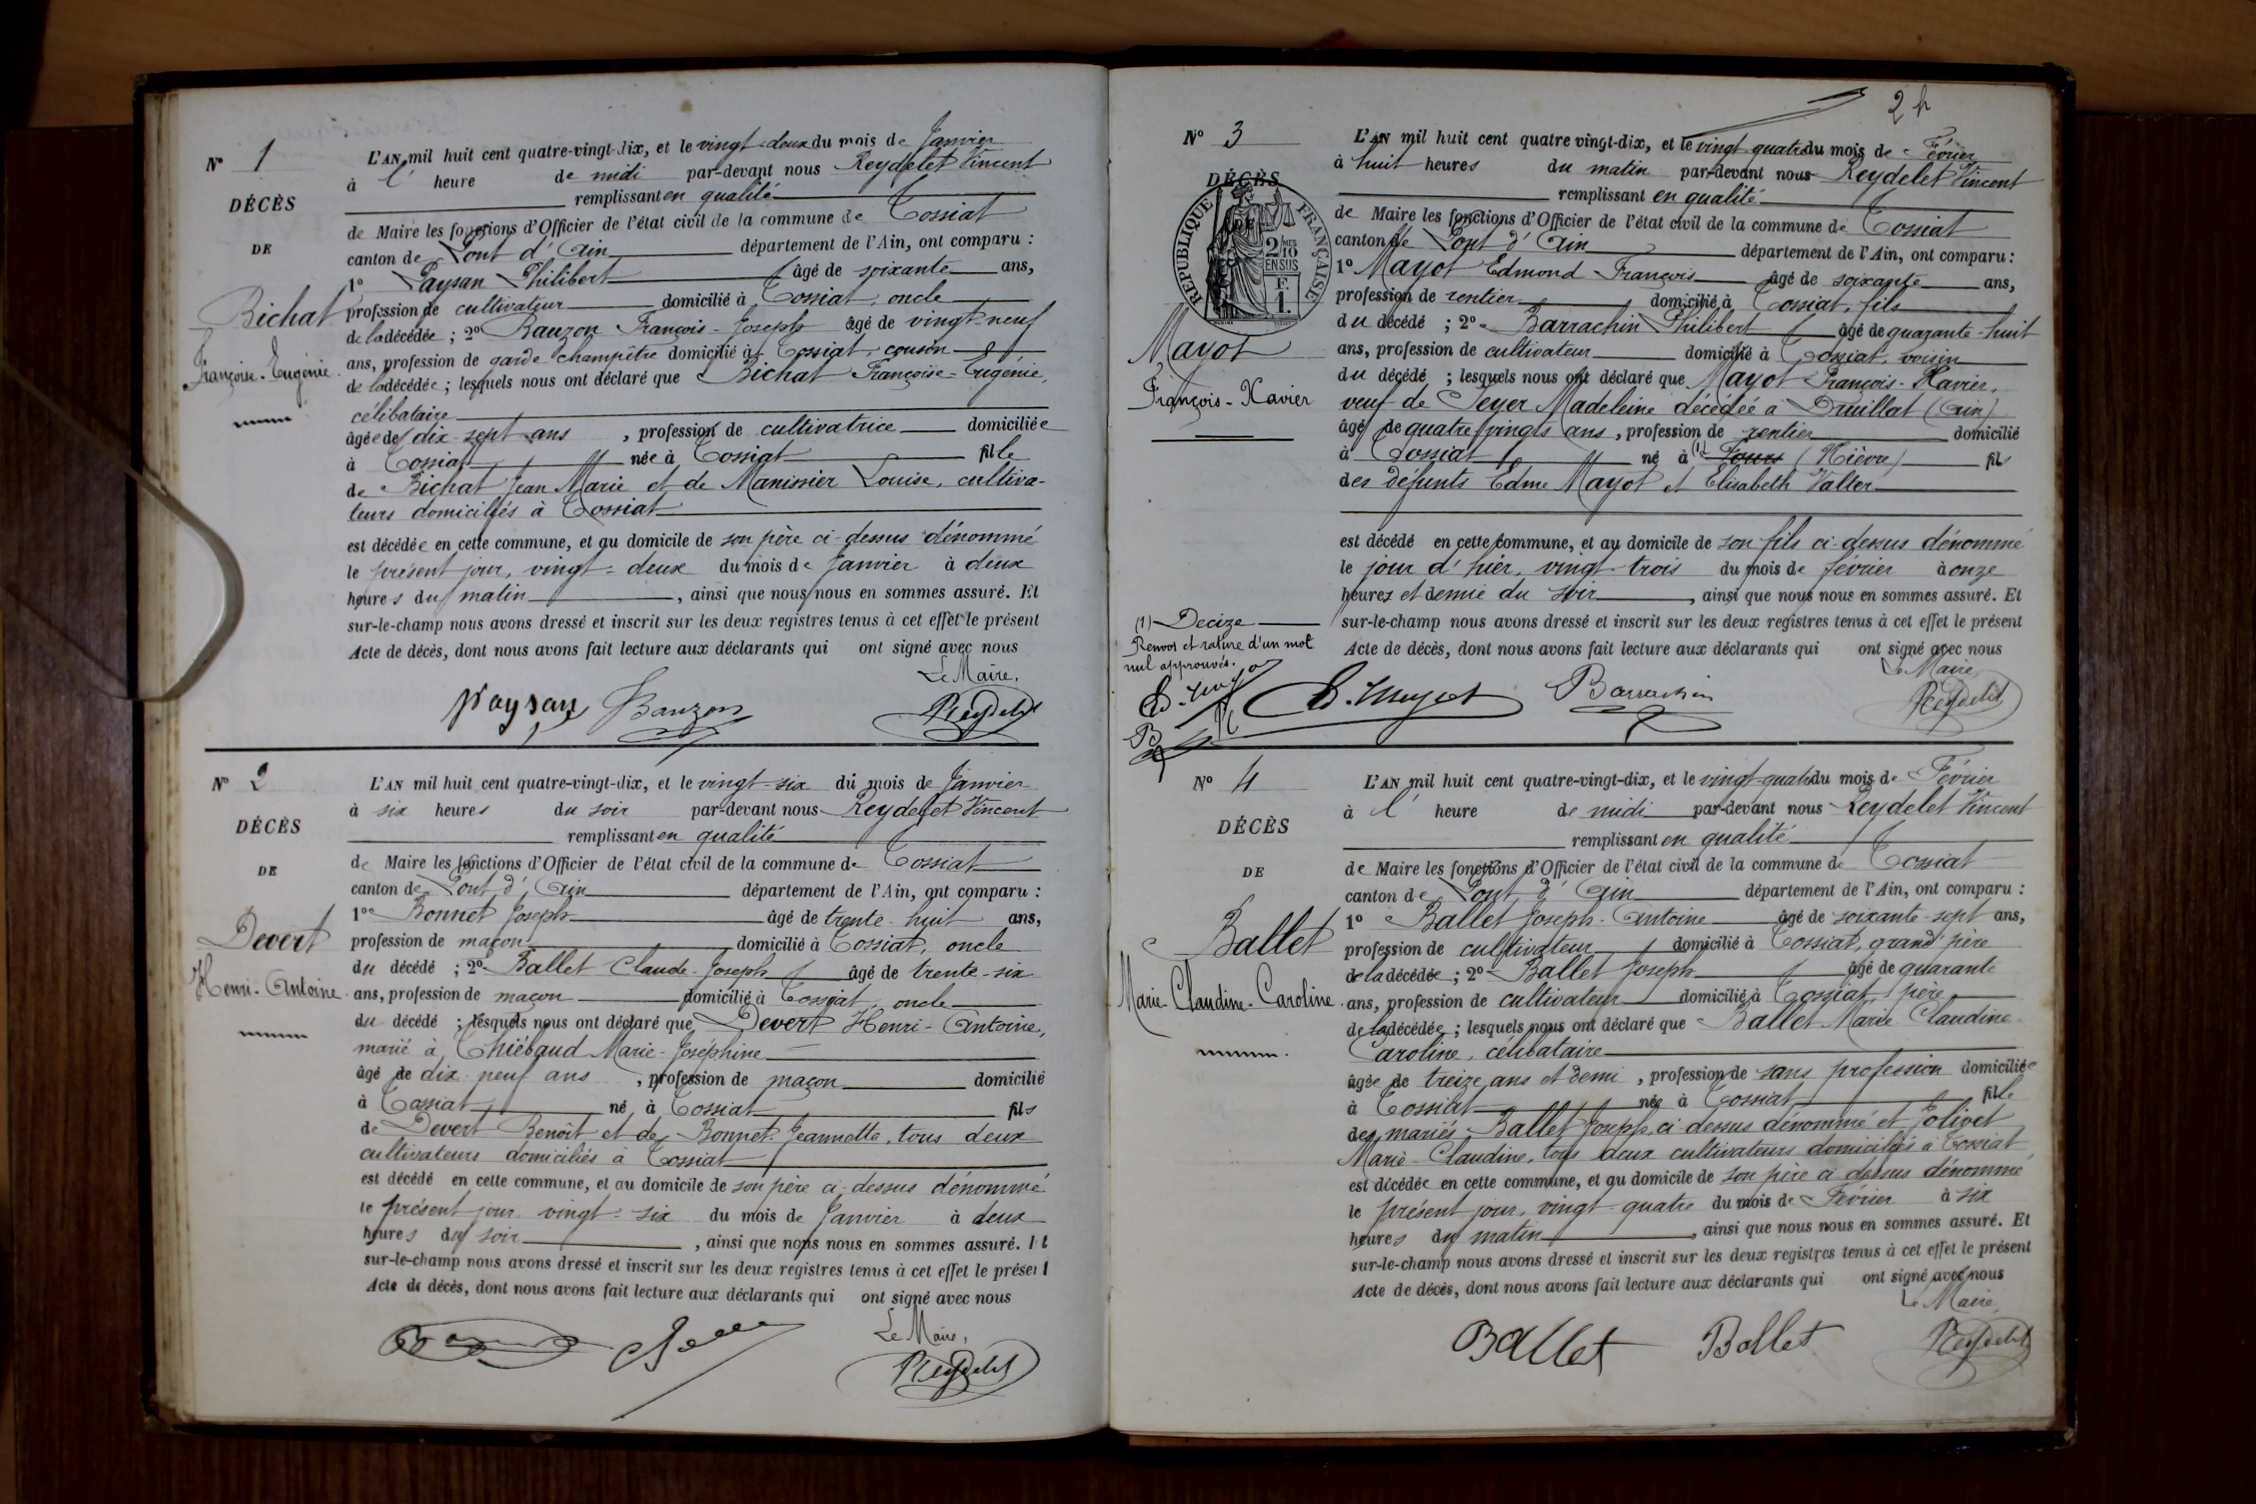 N° 1
DÉCÈS
DE
Bichat
Françoise-Eugénie
L'AN mil huit cent quatre-vingt-dix, et le vingt-deux du mois de Janvier
à l' heure de midi par-devant nous Reydelet Vincent
remplissant en qualité
de Maire les fonctions d'Officier de l'état civil de la commune de Tossiat
canton de Pont d'Ain département de l'Ain, ont comparu :
1° Paysan Philibert âgé de soixante ans,
profession de cultivateur domicilié à Tossiat, oncle
de la décédée ; 2° Bauzon François-Joseph âgé de vingt-neuf
ans, profession de garde champêtre domicilié à Tossiat, cousin
de la décédée ; lesquels nous ont déclaré que Bichat Françoise-Eugénie,
célibataire
âgée de dix-sept ans, profession de cultivatrice domiciliée
à Tossiat née à Tossiat fille
de Bichat Jean Marie et de Manissier Louise, cultiva-
teurs domiciliés à Tossiat
est décédée en cette commune, et au domicile de son père ci-dessus dénommé
le présent jour, vingt-deux du mois de Janvier à deux
heures du matin, ainsi que nous nous en sommes assuré. Et
sur-le-champ nous avons dressé et inscrit sur les deux registres tenus à cet effet le présent
Acte de décès, dont nous avons fait lecture aux déclarants qui ont signé avec nous
Le Maire,
Paysan Bauzon Reydelet
N° 2
DÉCÈS
DE
Devert
Henri-Antoine
L'AN mil huit cent quatre-vingt-dix, et le vingt-six du mois de Janvier
à six heures du soir par-devant nous Reydelet Vincent
remplissant en qualité
de Maire les fonctions d'Officier de l'état civil de la commune de Tossiat
canton de Pont d'Ain département de l'Ain, ont comparu :
1° Bonnet Joseph âgé de trente-huit ans,
profession de maçon domicilié à Tossiat, oncle
du décédé ; 2° Ballet Claude-Joseph âgé de trente-six
ans, profession de maçon domicilié à Tossiat, oncle
du décédé ; lesquels nous ont déclaré que Devert Henri-Antoine,
marié à Thiébaud Marie-Joséphine
âgé de dix neuf ans, profession de maçon domicilié
à Tossiat né à Tossiat fils
de Devert Benoît et de Bonnet Jeannette, tous deux
cultivateurs domiciliés à Tossiat
est décédé en cette commune, et au domicile de son père ci-dessus dénommé
le présent jour vingt-six du mois de Janvier à deux
heures du soir, ainsi que nous nous en sommes assuré. Et
sur-le-champ nous avons dressé et inscrit sur les deux registres tenus à cet effet le présent
Acte de décès, dont nous avons fait lecture aux déclarants qui ont signé avec nous
Le Maire,
Reydelet
2
N° 3
DÉCÈS
DE
RÉPUBLIQUE FRANÇAISE
2/10 EN SUS
F. 1.
Mayot
François-Xavier
L'AN mil huit cent quatre vingt-dix, et le vingt-quatre du mois de Février
à huit heures du matin par-devant nous Reydelet Vincent
remplissant en qualité
de Maire les fonctions d'Officier de l'état civil de la commune de Tossiat
canton de Pont d'Ain département de l'Ain, ont comparu :
1° Mayot Edmond François âgé de soixante ans,
profession de rentier domicilié à Tossiat, fils
du décédé ; 2° Barrachin Philibert âgé de quarante-huit
ans, profession de cultivateur domicilié à Tossiat, voisin
du décédé ; lesquels nous ont déclaré que Mayot François-Xavier,
veuf de Seyer Madeleine décédée à Druillat (Ain)
âgé de quatre vingts ans, profession de rentier domicilié
à Tossiat né à (1) Tours (Nièvre) fils
des défunts Edme Mayot et Elisabeth Valter
est décédé en cette commune, et au domicile de son fils ci-dessus dénommé
le jour d'hier, vingt-trois du mois de février à onze
heures et demie du soir, ainsi que nous nous en sommes assuré. Et
sur-le-champ nous avons dressé et inscrit sur les deux registres tenus à cet effet le présent
Acte de décès, dont nous avons fait lecture aux déclarants qui ont signé avec nous
(1) Decize
Renvoi et rature d'un mot
nul approuvés.
Le Maire,
Ed. Mayot Barrachin Reydelet
N° 4
DÉCÈS
DE
Ballet
Marie-Claudine-Caroline
L'AN mil huit cent quatre-vingt-dix, et le vingt-quatre du mois de Février
à l' heure de midi par-devant nous Reydelet Vincent
remplissant en qualité
de Maire les fonctions d'Officier de l'état civil de la commune de Tossiat
canton de Pont d'Ain département de l'Ain, ont comparu :
1° Ballet Joseph-Antoine âgé de soixante-sept ans,
profession de cultivateur domicilié à Tossiat, grand père
de la décédée ; 2° Ballet Joseph âgé de quarante
ans, profession de cultivateur domicilié à Tossiat, père
de la décédée ; lesquels nous ont déclaré que Ballet Marie Claudine
Caroline, célibataire
âgée de treize ans et demi, profession de sans profession domiciliée
à Tossiat née à Tossiat fille
des mariés Ballet Joseph, ci-dessus dénommé et Jolivet
Marie-Claudine, tous deux cultivateurs domiciliés à Tossiat
est décédée en cette commune, et au domicile de son père ci-dessus dénommé
le présent jour, vingt-quatre du mois de Février à six
heures du matin, ainsi que nous nous en sommes assuré. Et
sur-le-champ nous avons dressé et inscrit sur les deux registres tenus à cet effet le présent
Acte de décès, dont nous avons fait lecture aux déclarants qui ont signé avec nous
Le Maire,
Ballet Ballet Reydelet